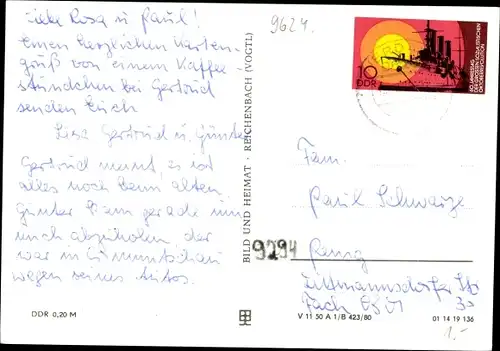 Liebe Rosa u. Paul!
Einen herzlichen Karten-
gruß von einem Kaffee-
stündchen bei Gertrud
senden Euch
Lisa Gertrud u. Günter
Gertrud meint, es ist
alles noch beim alten
Günter kam gerade um
mich abzuholen, der
war in Crimmitschau
wegen seines Autos.
DDR 0,20 M
BILD UND HEIMAT · REICHENBACH (VOGTL)
9624
10
DDR
60. JAHRESTAG
DER GROSSEN SOZIALISTISCHEN
OKTOBERREVOLUTION
Fam.
Paul Schwarze
9294
Penig
Dittmannsdorfer
30
V 11 50 A 1/B 423/80
01 14 19 136
1.-